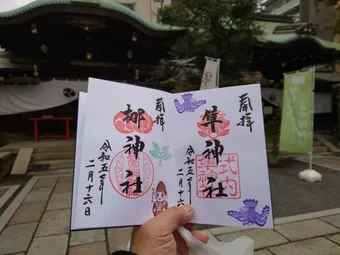 奉拝
隼神社
式内
令和五年
二月十六日
奉拝
梛神社
令和五年
二月十六日